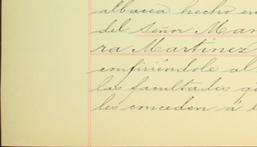 albacea hecho en
del señor Mar
ra Martinez
confiriéndole al
las facultades q
les conceden á l